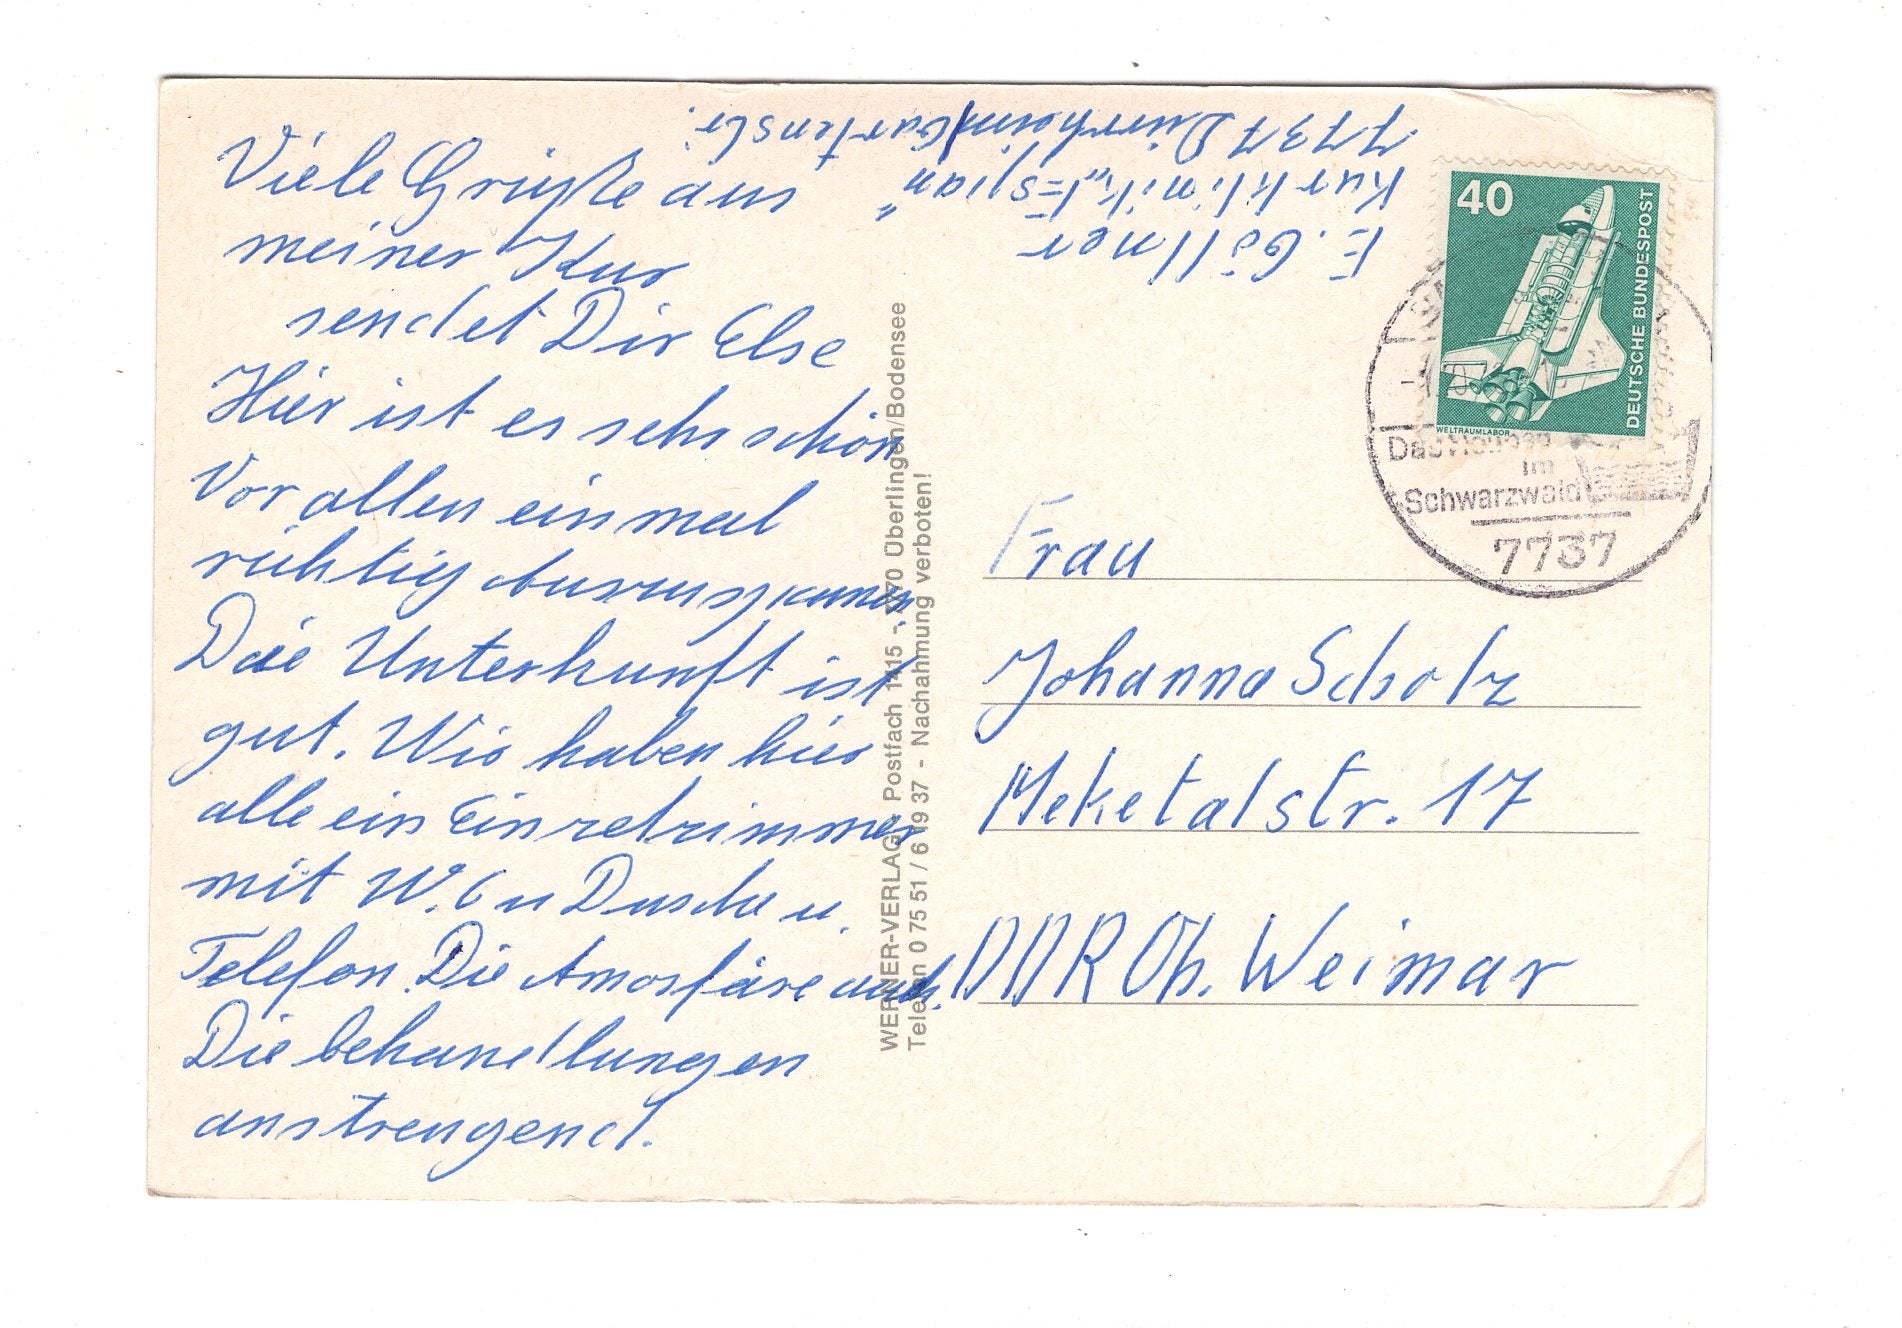 Viele Grüße aus
meiner Kur
sendet Dir Else
Hier ist es sehr schön
Vor allen einmal
richtig
Die Unterkunft ist
gut. Wir haben hier
alle ein Einzelzimmer
mit W.C u Dusche u.
Telefon. Die Atmosfäre auch.
Die behandlungen
anstrengend.
E. Göllner
Kurklinik „Espan“
7737 Dürrheim Gartenstr.
WERNER-VERLAG - Postfach 1415 - 7770 Überlingen/Bodensee
Telefon 0 75 51 / 6 19 37 - Nachahmung verboten!
40
DEUTSCHE BUNDESPOST
WELTRAUMLABOR
im
Schwarzwald
7737
Frau
Johanna Scholz
Meketalstr. 17
DDR Th. Weimar